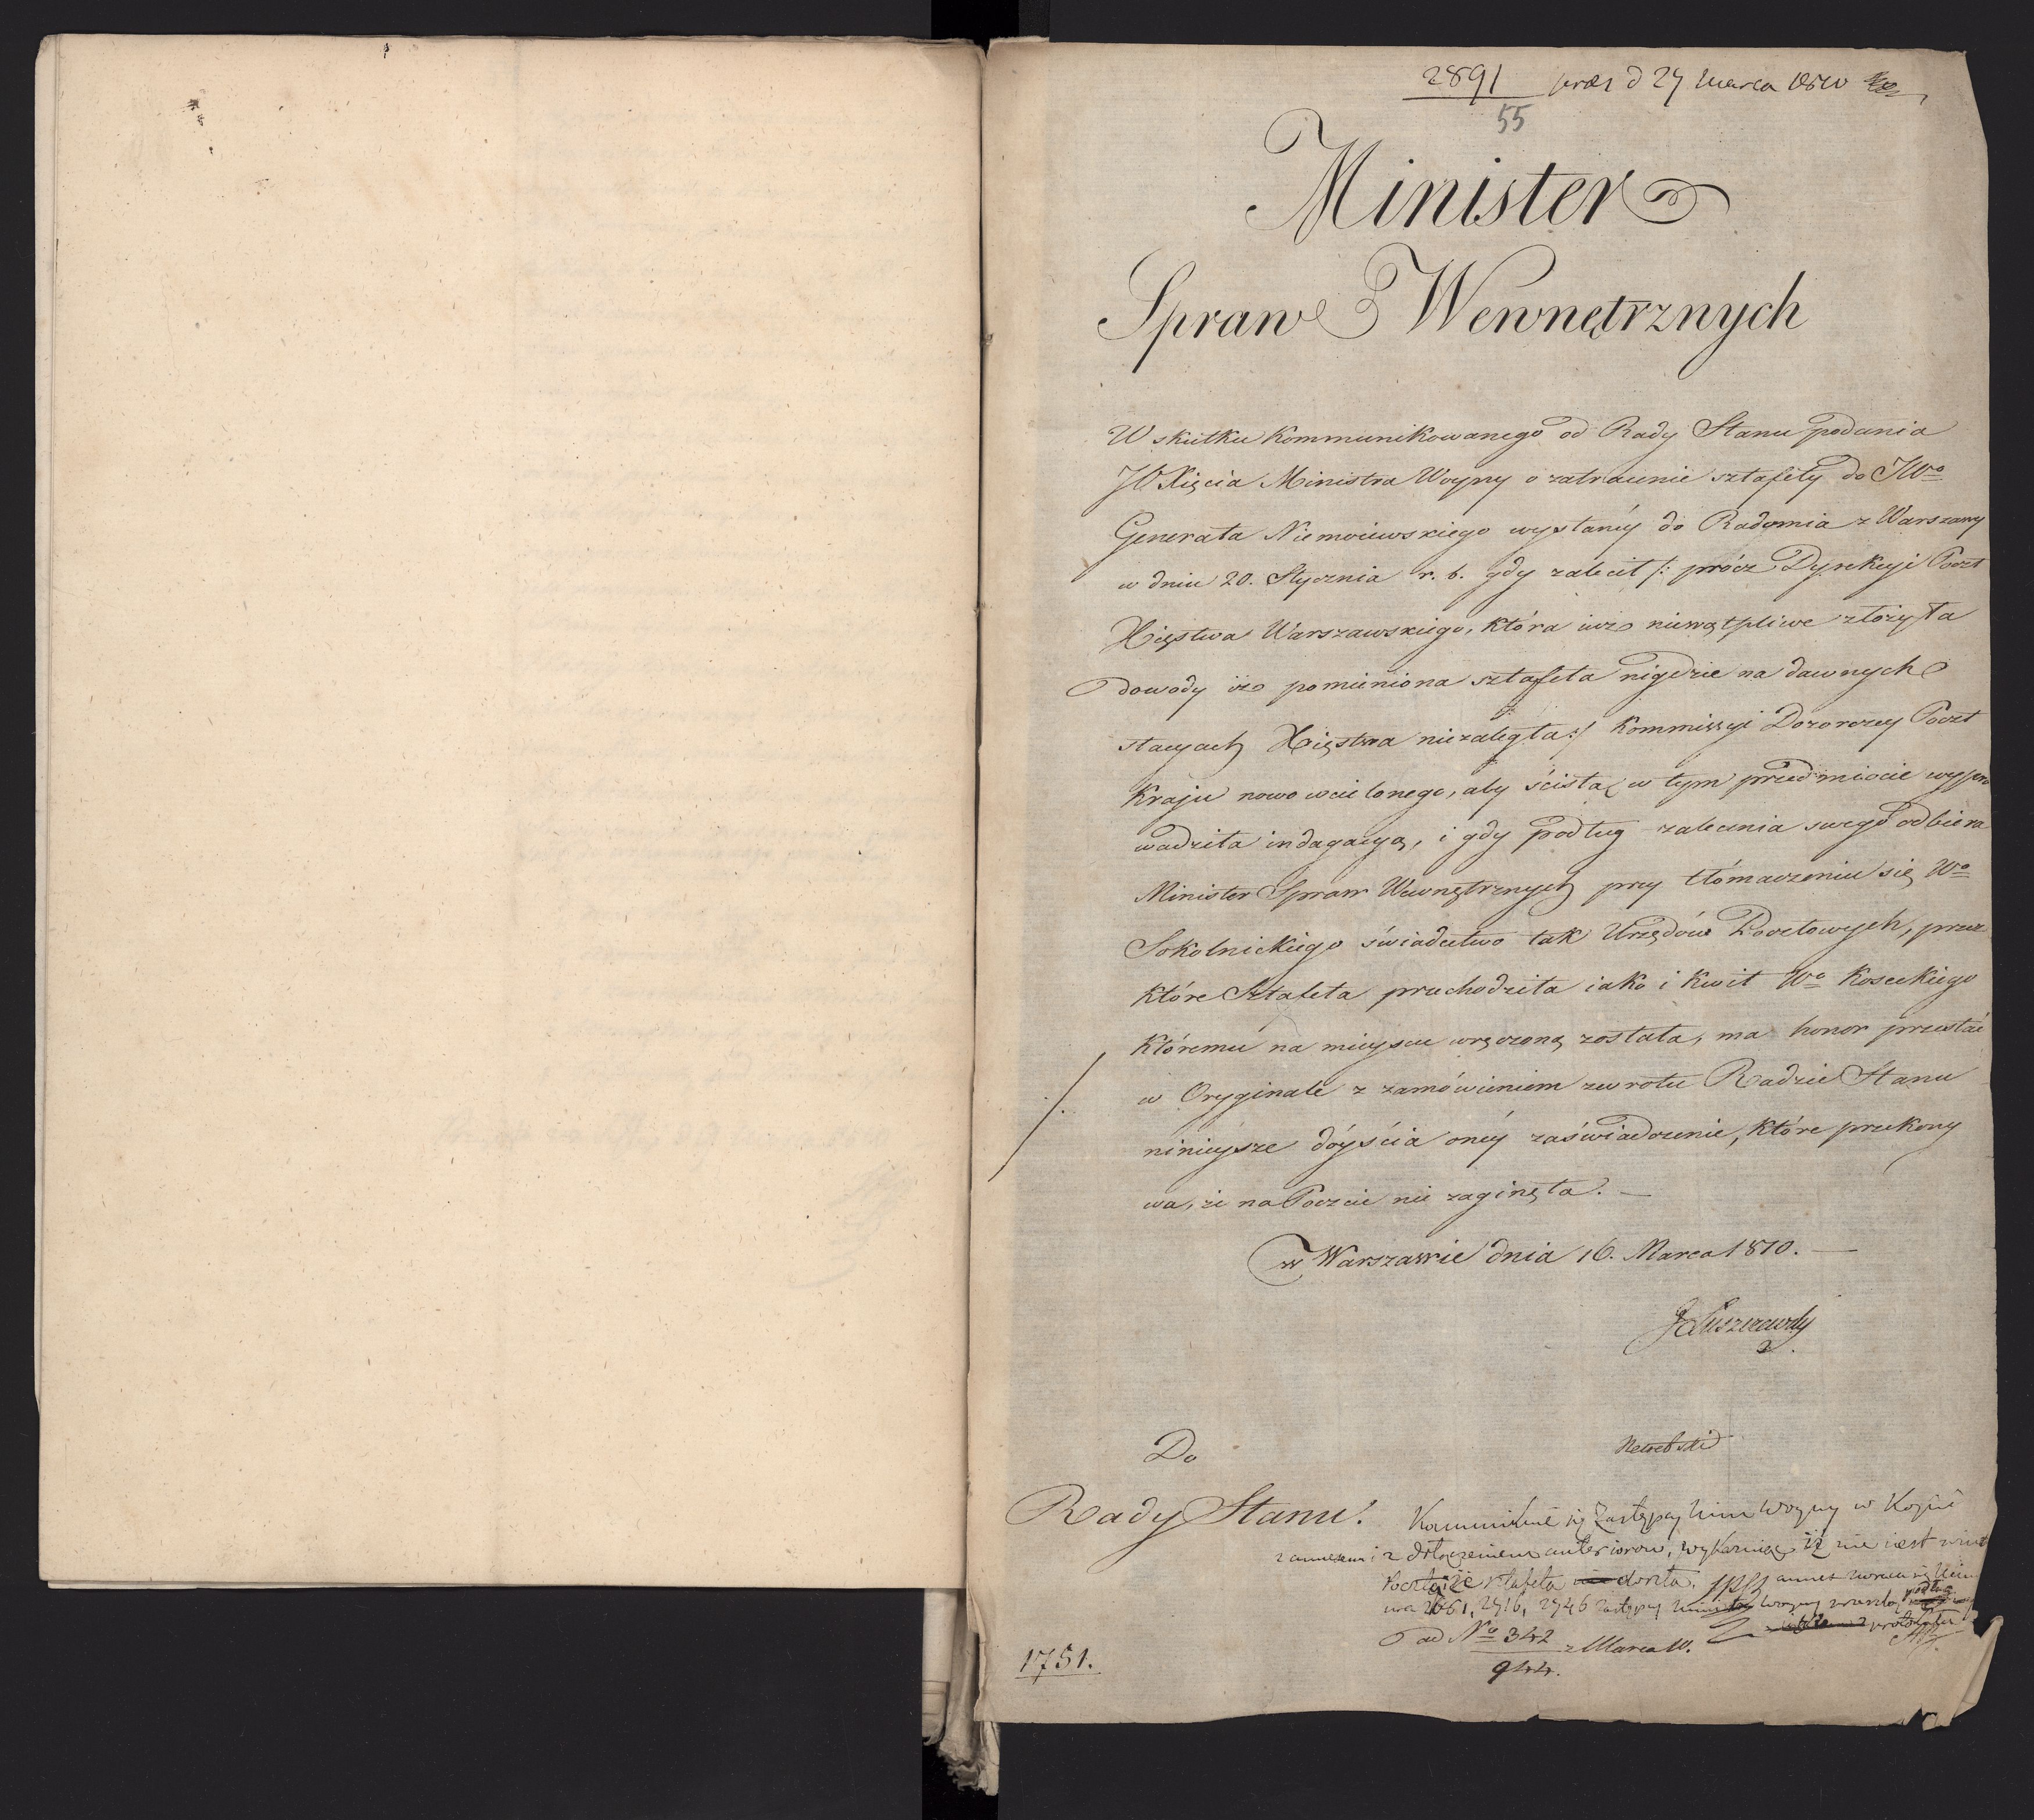 2891 pras d 27 Marca 1810
55
Minister
Spraw Wewnętrznych
W skutku kommunikowanego od Rady Stanu podania
JO Xięcia Ministra Woyny o zatracenie sztafety do JWo
Generała Niemoiewskiego wysłanéy do Radomia z Warszawy
w dniu 20. Stycznia r. b. gdy zalecił /: prócz Dyrekcyi Poczt
Xięstwa Warszawskiego, która iuż niewątpliwe złożyła
dowody iż pomieniona sztafeta nigdzie na dawnych
stacyach Xięstwa niezaległa :/ Kommissyi Dozorczey Poczt
Kraju nowo wcielonego, aby ścisłą w tym przedmiocie wypro
wadziła indagacyą, i gdy podług zalecenia swego odbiera
Minister Spraw Wewnętrznych przy tłómaczeniu się Wo
Sokolnickiego świadectwo tak Urzędów Pocztowych, przez
które Sztafeta przechodziła iako i kwit Wo Koseckiego
któremu na mieyscu wręczoną została, ma honor przesłać
w Oryginale z zamówieniem zwrotu Radzie Stanu
ninieysze dóyścia onéy zaświadczenie, które przekony
wa, że na Poczcie nie zaginęła. —
w Warszawie dnia 16. Marca 1810. —
J Łuszczewski
Do
Rady Stanu.
Kommunikuie się Zastępcy Min Woyny w Kopii
z annexem i z dołączeniem anteriorow, wykazuiąc iż nie iest
Poczty iż sztafeta nie doszła. annex
2716, 2746 Zastępcy Ministra Woyny
ad No 342
944. z Marca 10.
1751.